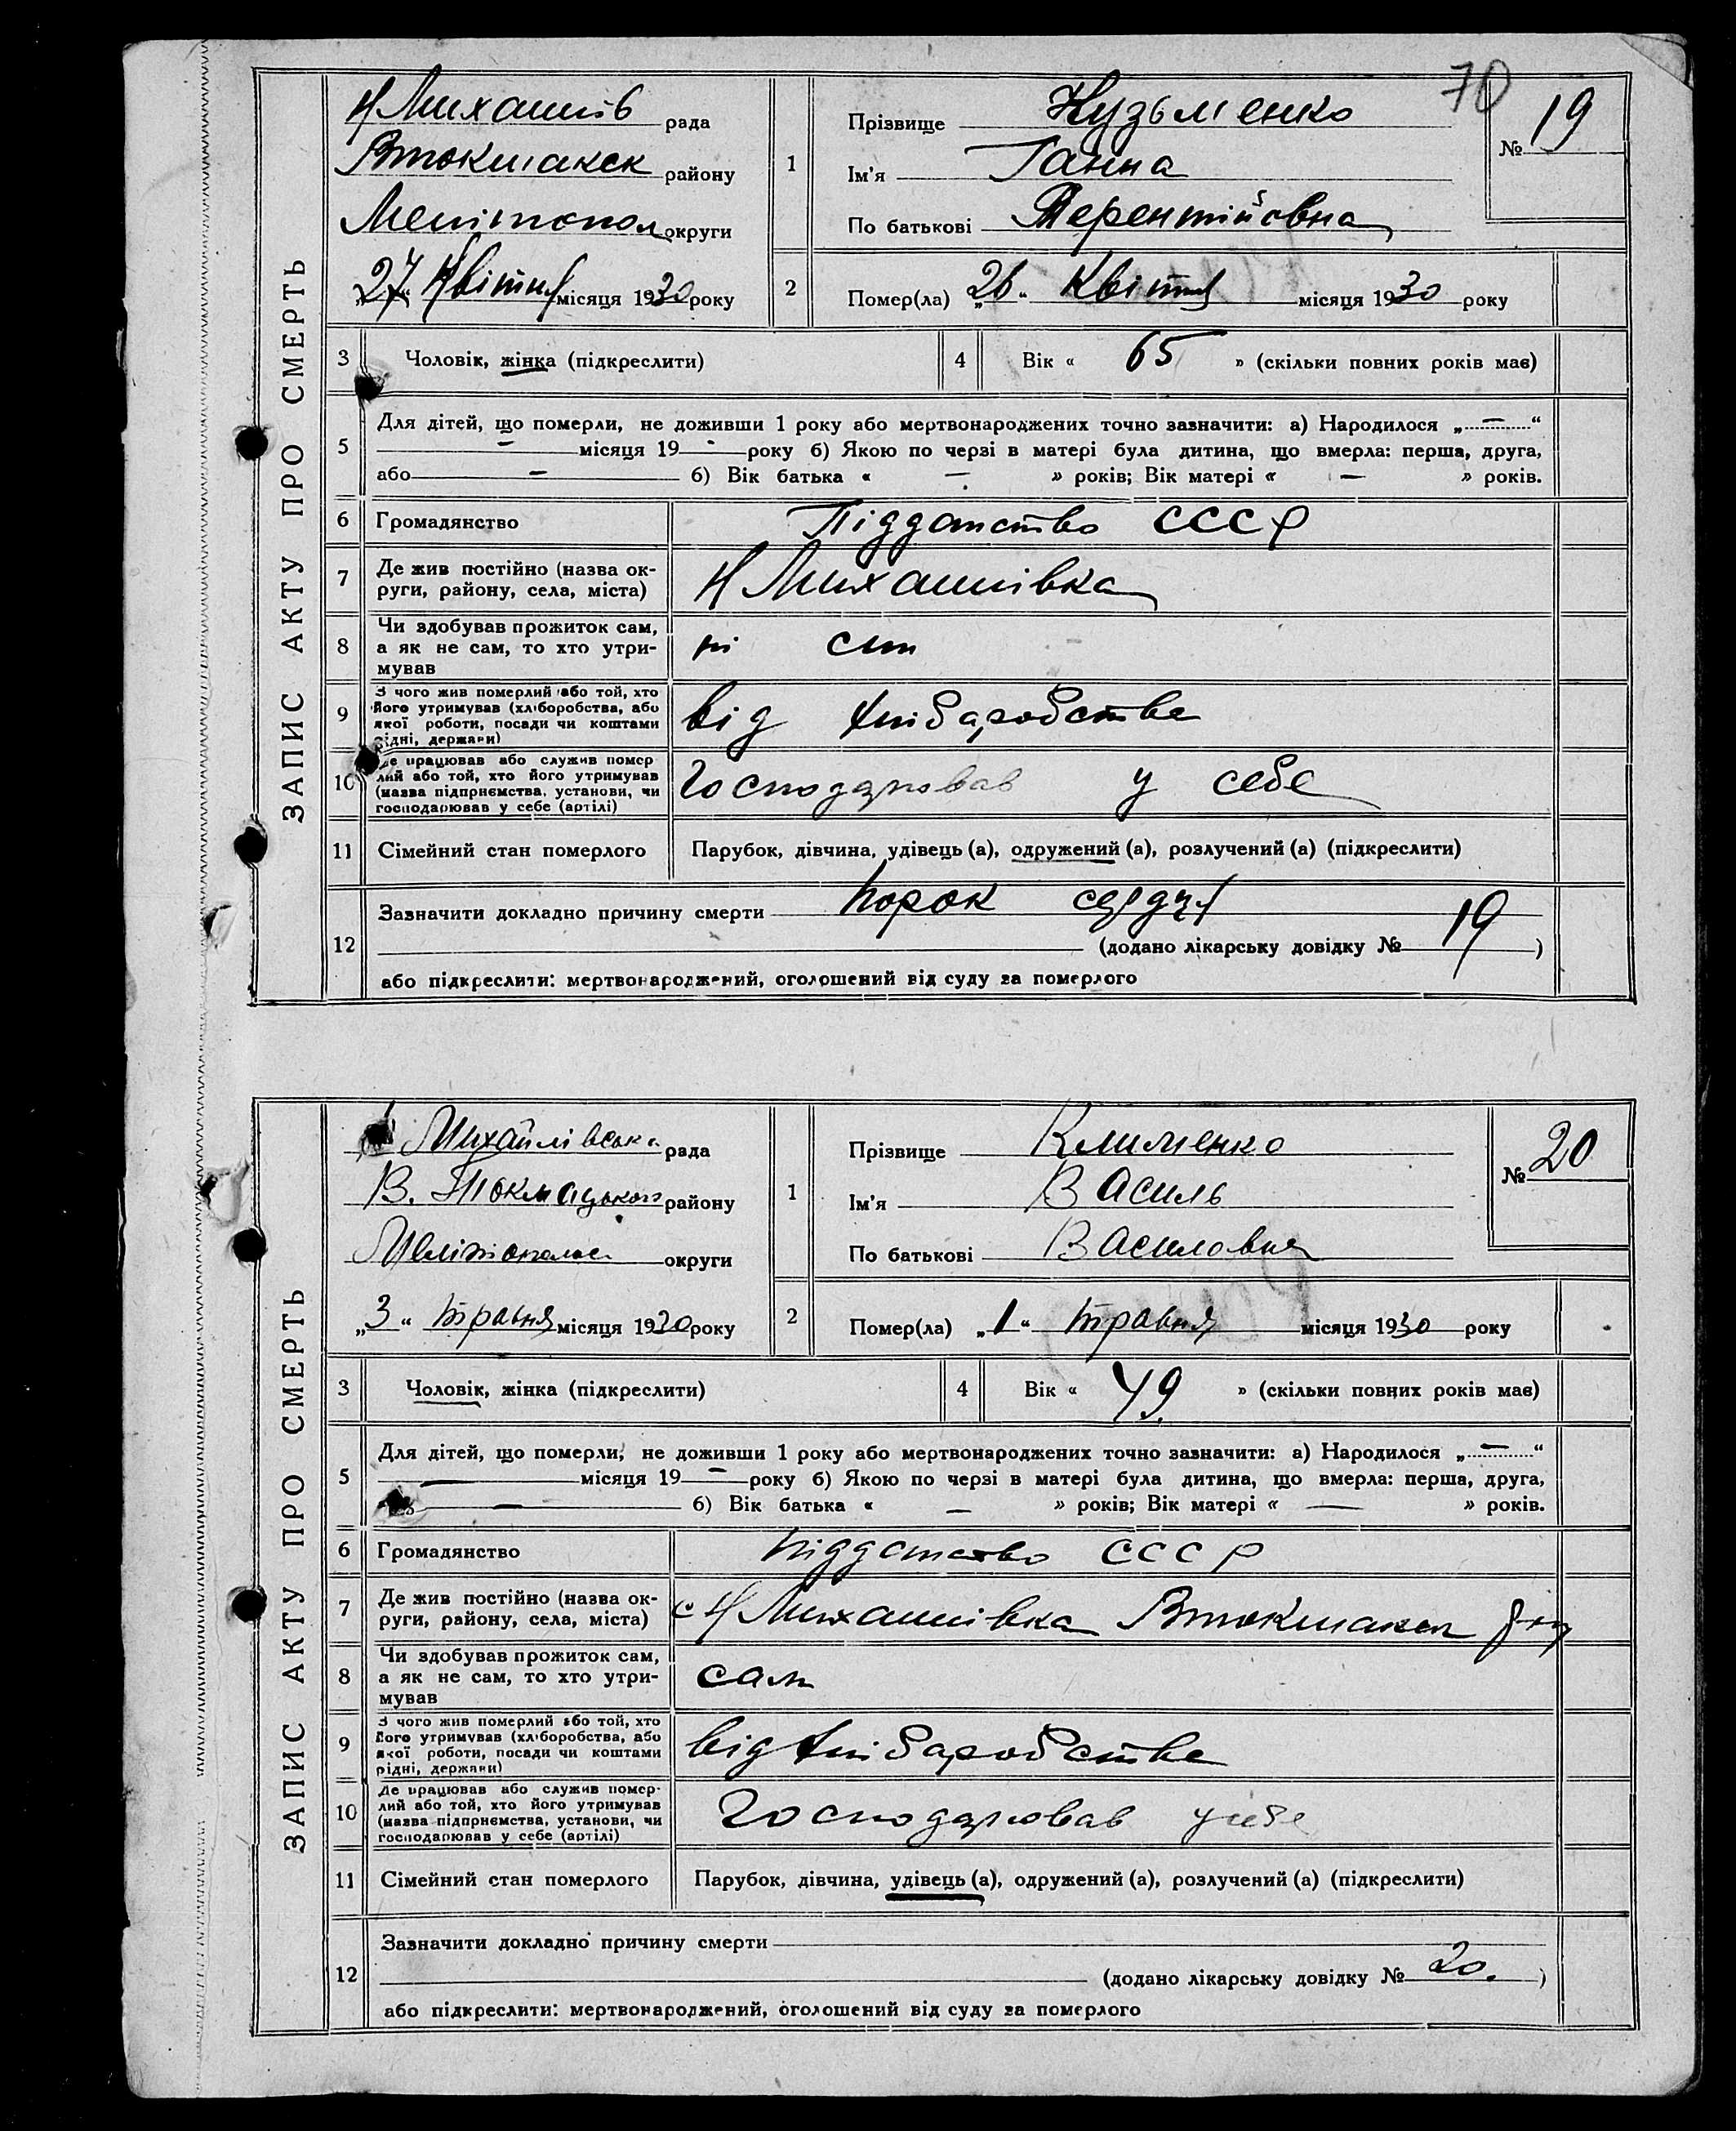 70
ЗАПИС АКТУ ПРО СМЕРТЬ
Н Михайлів рада
Втокмакск району
Мелітопол округи
„27“ Квітня місяця 1930 року
1
Прізвище Кузьменко
Ім'я Ганна
По батькові Терентійовна
№ 19
2
Помер(ла) „26“ Квітня місяця 1930 року
3 Чоловік, жінка (підкреслити)
4 Вік « 65 » (скільки повних років має)
5 Для дітей, що померли, не доживши 1 року або мертвонароджених точно зазначити: а) Народилося „ — “
— місяця 19 - року б) Якою по черзі в матері була дитина, що вмерла: перша, друга,
або — б) Вік батька « — » років; Вік матері « — » років.
6 Громадянство Підданство СССР
7 Де жив постійно (назва ок-
руги, району, села, міста) Н Михайлівка
8 Чи здобував прожиток сам,
а як не сам, то хто утри-
мував ні син
9 З чого жив померлий або той, хто
його утримував (хліборобства, або
якої роботи, посади чи коштами
рідні, держави) від хлібаробства
10 Де працював або служив помер
лий або той, хто його утримував
(назва підприємства, установи, чи
господарював у себе (артілі) Господарював у себе
11 Сімейний стан померлого Парубок, дівчина, удівець (а), одружений (а), розлучений (а) (підкреслити)
12 Зазначити докладно причину смерти порок сердця
(додано лікарську довідку № 19 )
або підкреслити: мертвонароджений, оголошений від суду за померлого
ЗАПИС АКТУ ПРО СМЕРТЬ
Михайлівська рада
В. Токмацького району
Мелітопольс округи
„3“ травня місяця 1930 року
1
Прізвище Клименко
Ім'я Василь
По батькові Василовия
№ 20
2
Помер(ла) „1“ травня місяця 1930 року
3 Чоловік, жінка (підкреслити)
4 Вік « 49 » (скільки повних років має)
5 Для дітей, що померли, не доживши 1 року або мертвонароджених точно зазначити: а) Народилося „ — “
— місяця 19 — року б) Якою по черзі в матері була дитина, що вмерла: перша, друга,
— б) Вік батька « — » років; Вік матері « — » років.
6 Громадянство підданство СССР
7 Де жив постійно (назва ок-
руги, району, села, міста) с Н Михайлівка Втокмакск р-ну
8 Чи здобував прожиток сам,
а як не сам, то хто утри-
мував сам
9 З чого жив померлий або той, хто
його утримував (хліборобства, або
якої роботи, посади чи коштами
рідні, держави) від хлібаробства
10 Де працював або служив помер-
лий або той, хто його утримував
(назва підприємства, установи, чи
господарював у себе (артілі) Господарював у себе
11 Сімейний стан померлого Парубок, дівчина, удівець (а), одружений (а), розлучений (а) (підкреслити)
12 Зазначити докладно причину смерти
(додано лікарську довідку № 20. )
або підкреслити: мертвонароджений, оголошений від суду за померлого